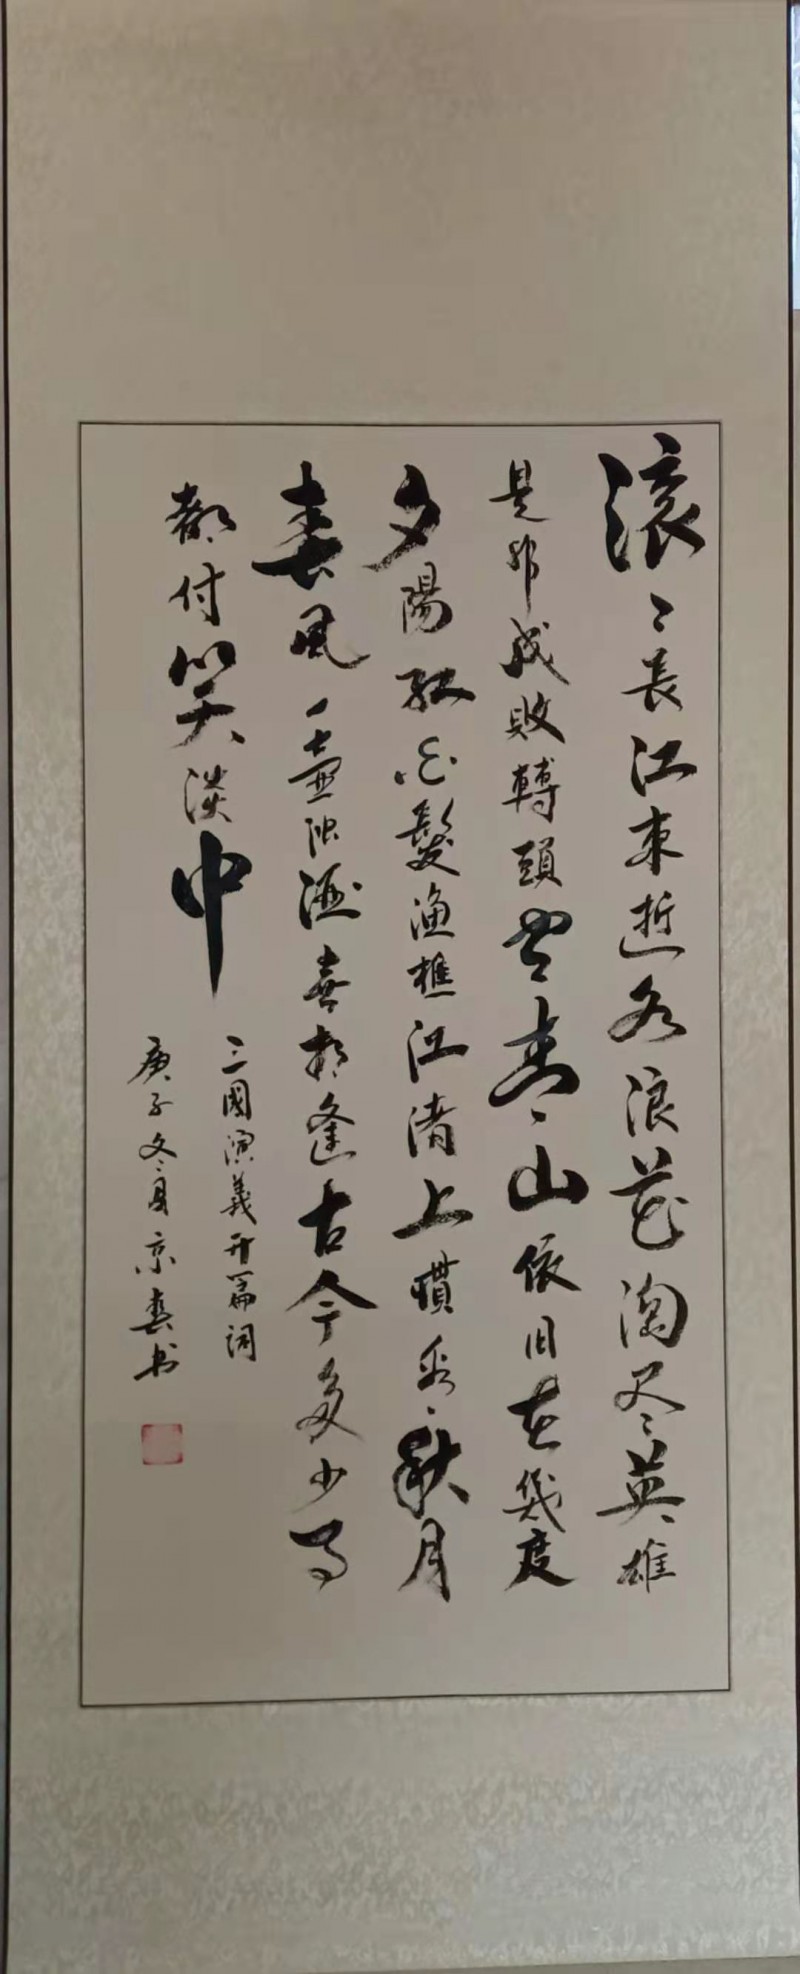 滚〻長江東逝水浪花淘尽英雄
是非成敗轉頭空青〻山依旧在幾度
夕陽红白髮渔樵江渚上慣看秋月
春風一壶浊酒喜相逢古今多少事
都付笑淡中
三國演義开篇词
庚子冬月京春书